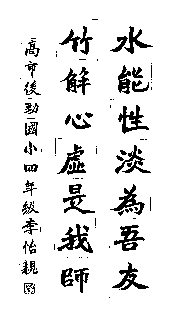 水能性淡為吾友
竹解心虛是我師
高市後勁國小四年級李佑親